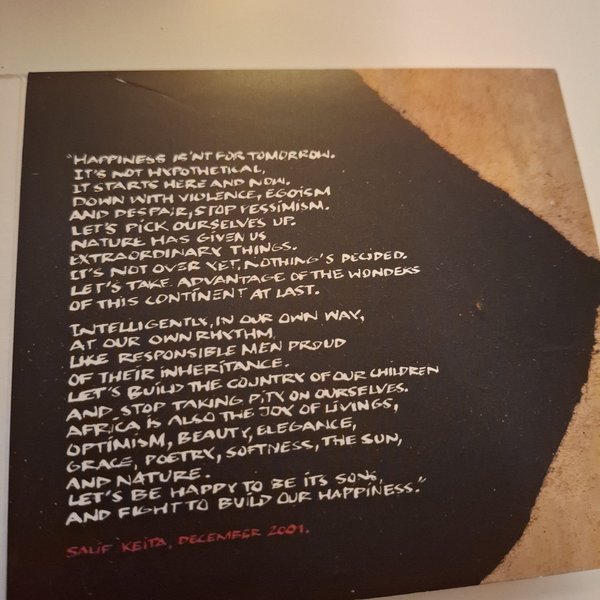 "HAPPINESS IS'NT FOR TOMORROW.
IT'S NOT HYPOTHETICAL,
IT STARTS HERE AND NOW.
DOWN WITH VIOLENCE, EGOISM
AND DESPAIR, STOP PESSIMISM.
LET'S PICK OURSELVES UP.
NATURE HAS GIVEN US
EXTRAORDINARY THINGS.
IT'S NOT OVER YET, NOTHING'S DECIDED.
LET'S TAKE ADVANTAGE OF THE WONDERS
OF THIS CONTINENT AT LAST.
INTELLIGENTLY, IN OUR OWN WAY,
AT OUR OWN RHYTHM,
LIKE RESPONSIBLE MEN PROUD
OF THEIR INHERITANCE.
LET'S BUILD THE COUNTRY OF OUR CHILDREN
AND STOP TAKING PITY ON OURSELVES.
AFRICA IS ALSO THE JOY OF LIVINGS,
OPTIMISM, BEAUTY, ELEGANCE,
GRACE, POETRY, SOFTNESS, THE SUN,
AND NATURE.
LET'S BE HAPPY TO BE ITS SONS,
AND FIGHT TO BUILD OUR HAPPINESS."
SALIF KEITA, DECEMBER 2001.